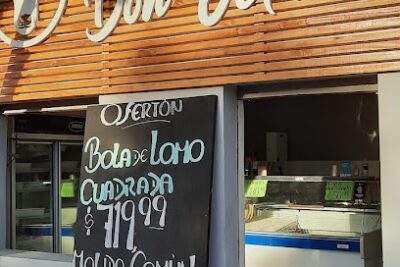 Don
OFERTÓN
BOLA DE LOMO
CUADRADA
$ 719,99
MOLIDA COMÚN